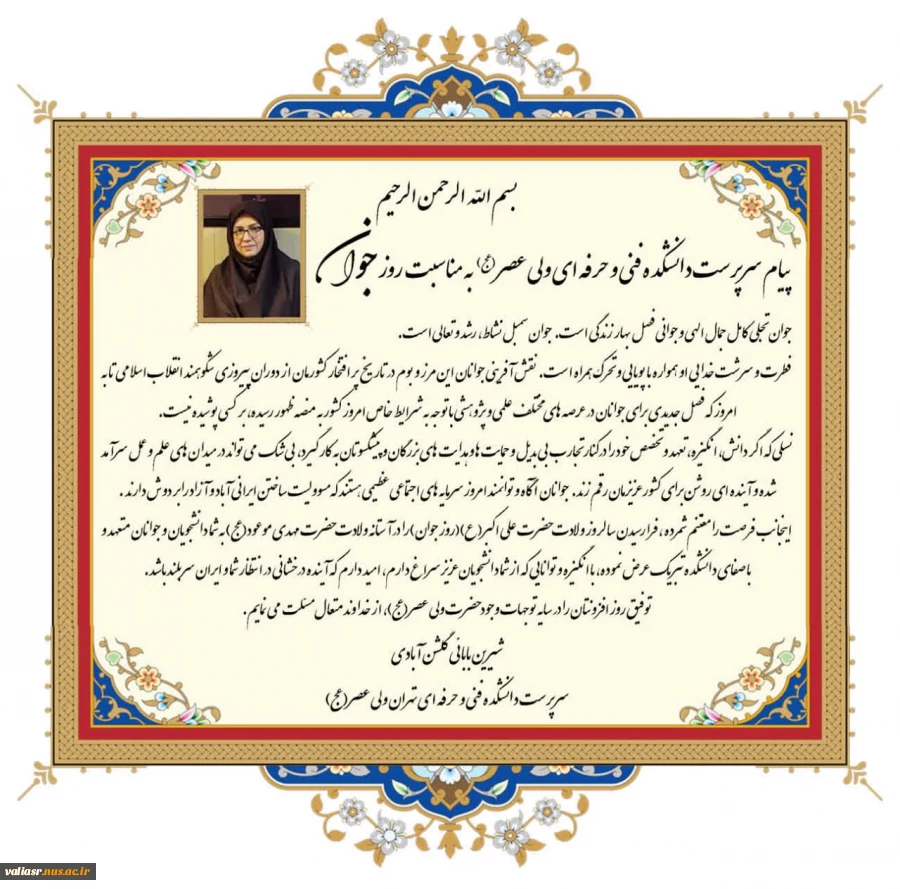 بسم الله الرحمن الرحیم
پیام سرپرست دانشکده فنی و حرفه ای ولی عصر (عج) به مناسبت روز جوان
جوان تجلی کامل جمال الهی و جوانی فصل بهار زندگی است. جوان سمبل نشاط، رشد و تعالی است.
فطرت و سرشت خدایی او همواره با پویایی و تحرک همراه است. نقش آفرینی جوانان این مرز و بوم در تاریخ پر افتخار کشورمان از دوران پیروزی شکوهمند انقلاب اسلامی تا به
امروز که فصل جدیدی برای جوانان در عرصه های مختلف علمی و پژوهشی با توجه به شرایط خاص امروز کشور به منصه ظهور رسیده، بر کسی پوشیده نیست.
نسلی که اگر دانش، انگیزه، تعهد و تخصص خود را در کنار تجارب بی بدیل و حمایت ها و هدایت های بزرگان و پیشکسوتان به کار گیرد، بی شک می تواند در میدان های علم و عمل سرآمد
شده و آینده ای روشن برای کشور عزیزمان رقم زند. جوانان آگاه و توانمند امروز سرمایه های اجتماعی عظیمی هستند که مسوولیت ساختن ایرانی آباد و آزاد را بر دوش دارند.
اینجانب فرصت را مغتنم شمرده، فرارسیدن سالروز ولادت حضرت علی اکبر(ع)(روز جوان) را در آستانه ولادت حضرت مهدی موعود(عج) به شما دانشجویان و جوانان متعهد و
با صفای دانشکده تبریک عرض نموده، با انگیزه و توانایی که از شما دانشجویان عزیز سراغ دارم، امید دارم که آینده درخشانی در انتظار شما و ایران سربلند باشد.
توفیق روز افزونتان را در سایه توجهات وجود حضرت ولی عصر(عج)، از خداوند متعال مسئلت می نمایم.
شیرین بابائی گلشن آبادی
سرپرست دانشکده فنی و حرفه ای تهران ولی عصر(عج)
valiasr.nus.ac.ir